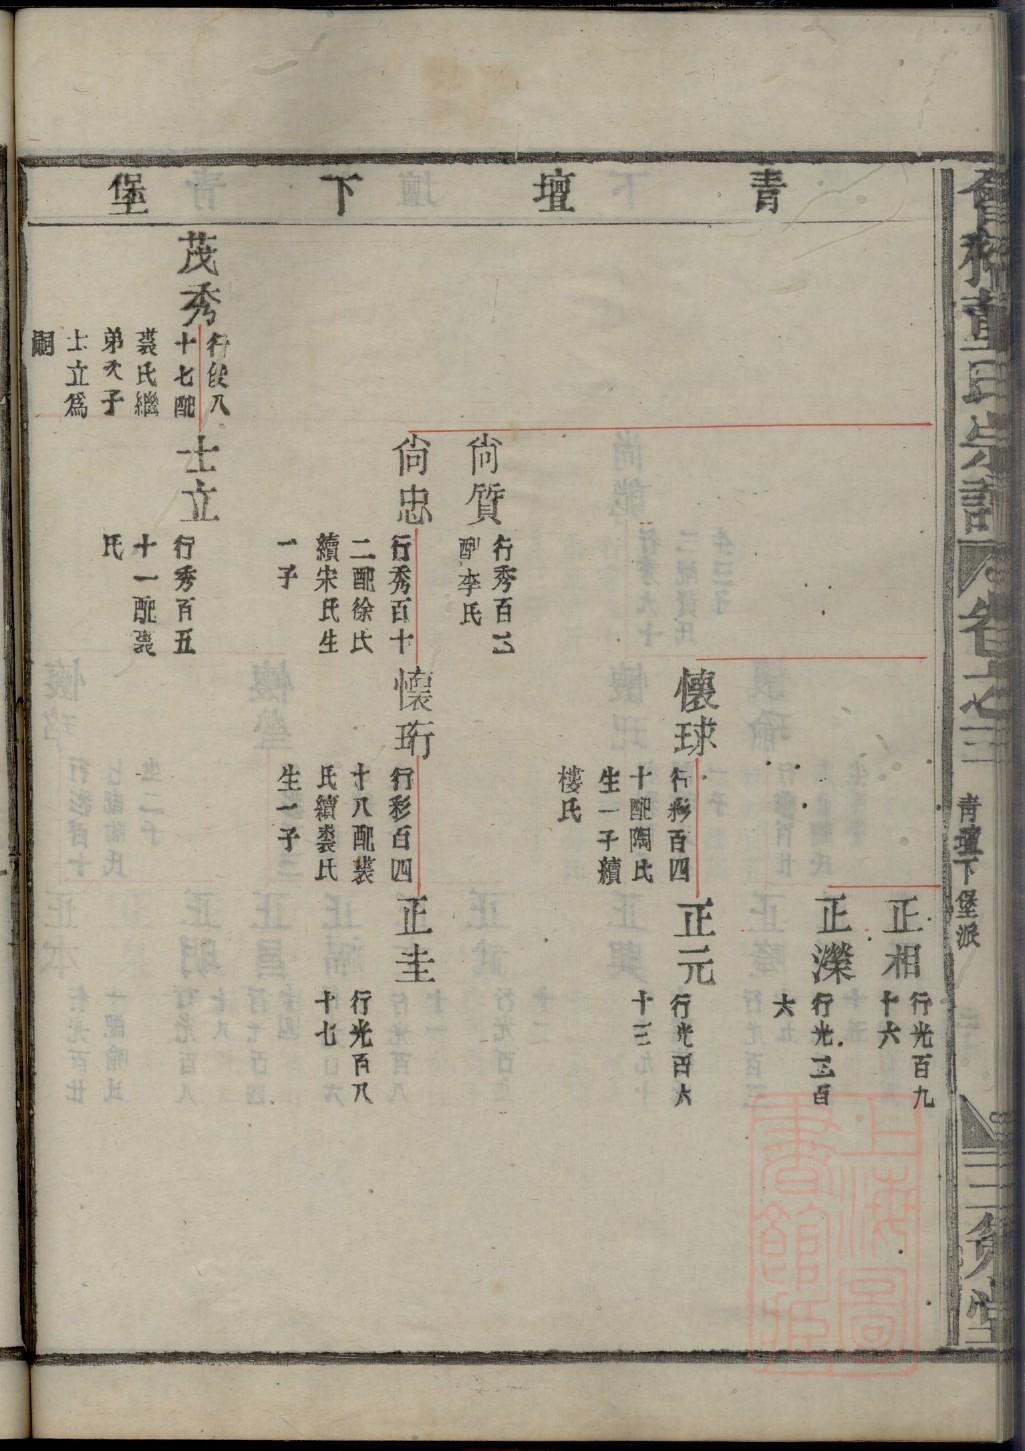 董氏宗譜
卷之三
青壇下堡派
青壇下堡
正相
行光百九
十六
正濼
行光二百
六
懷球
行彩百四
十配陶氏
生一子續
樓氏
正元
行光百六
十三
尚質
行秀百二
配李氏
尚忠
行秀百十
二配徐氏
續宋氏生
一子
懷珩
行彩百四
十八配裘
氏續裘氏
生一子
正圭
行光百八
十七
茂秀
行段八
十七配
裘氏繼
弟次子
士立為
嗣
士立
行秀百五
十一配裘
氏
上海圖書館藏